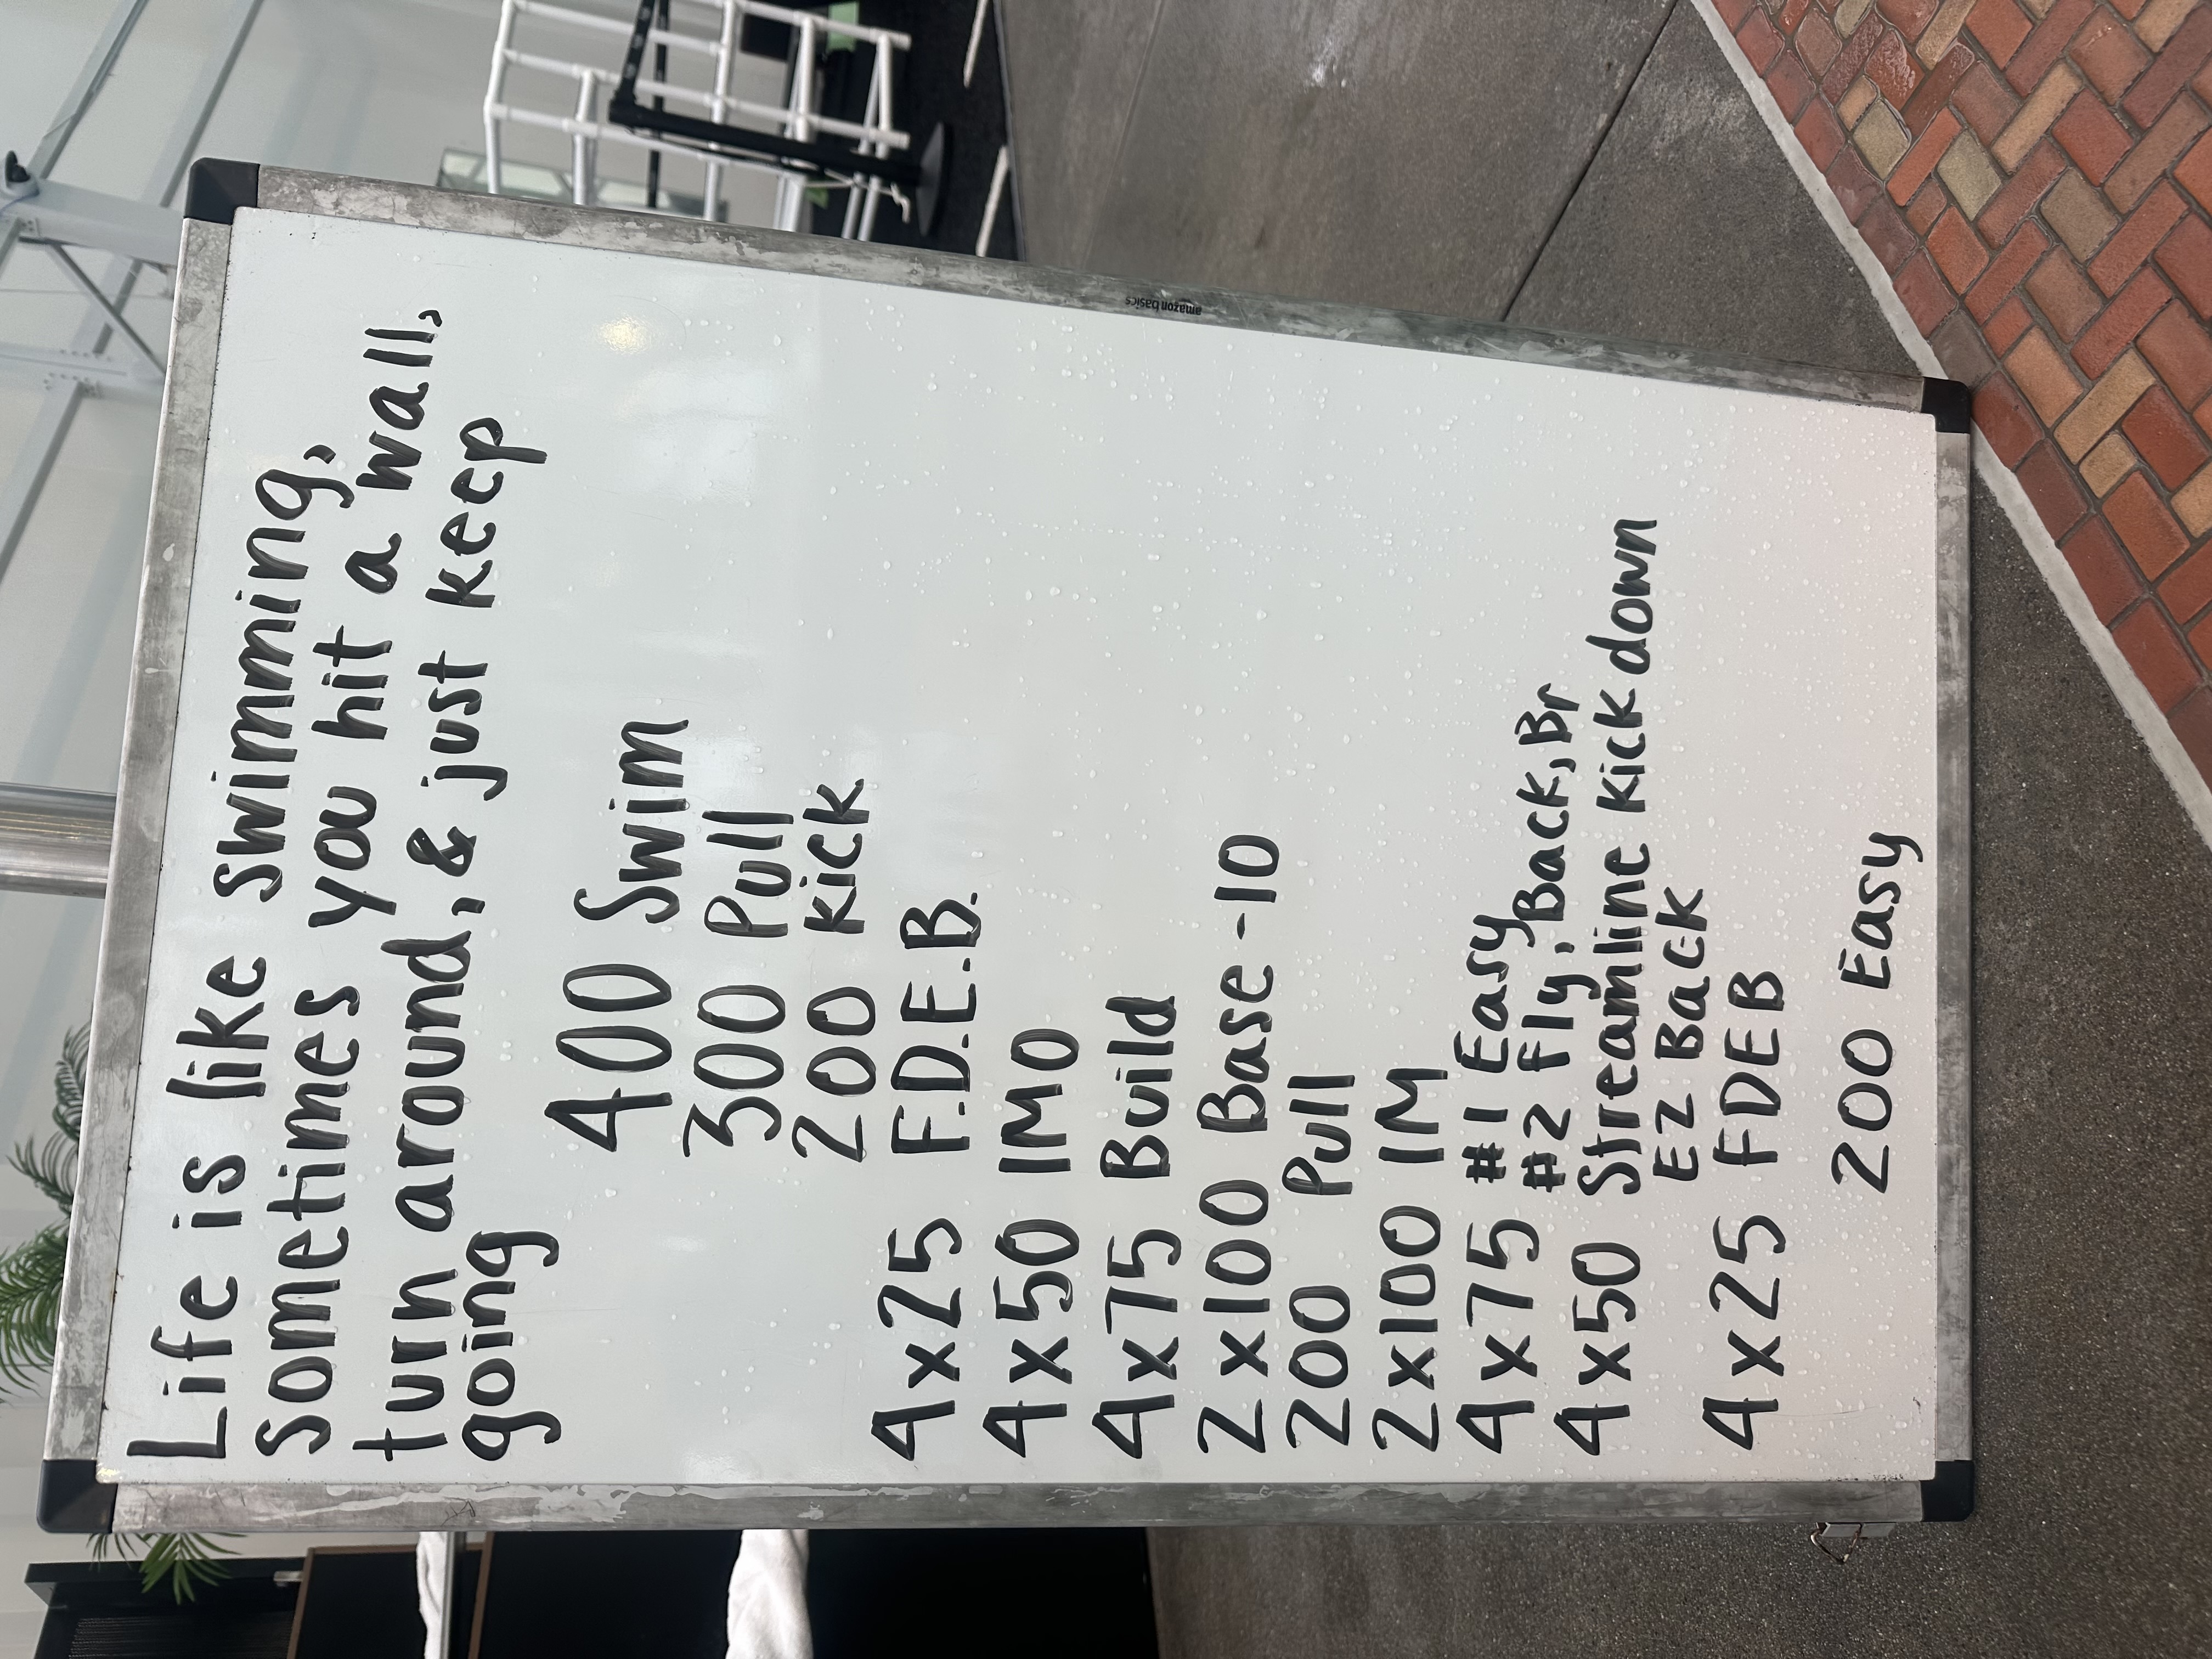 Life is like swimming,
sometimes you hit a wall,
turn around, & just keep
going
400 Swim
300 Pull
200 Kick
4x25 F.D.E.B.
4x50 IMO
4x75 Build
2x100 Base -10
200 Pull
2x100 IM
4x75 #1 Easy
#2 Fly, Back, Br
4x50 Streamline Kick down
EZ Back
4x25 FDEB
200 Easy
amazon basics